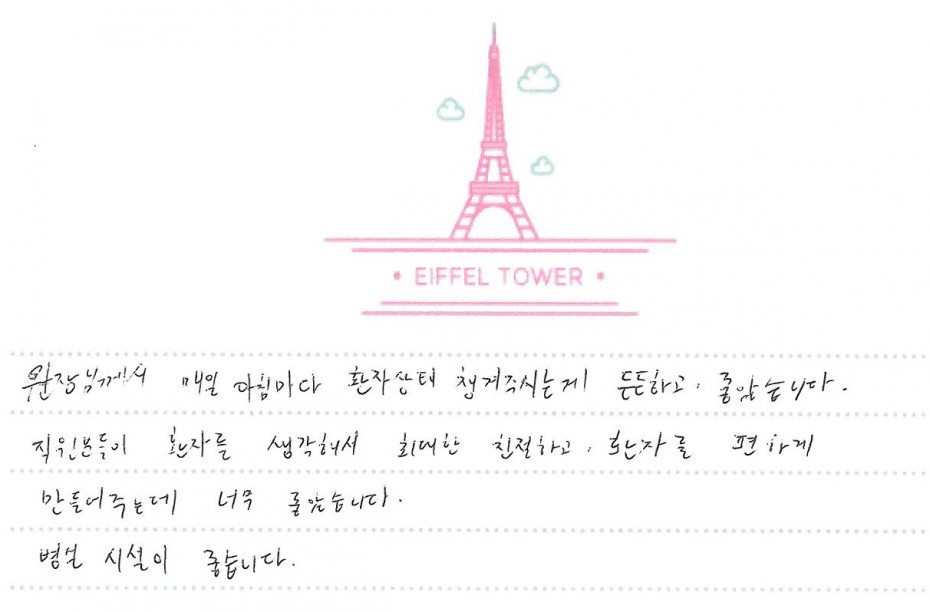 EIFFEL TOWER
원장님께서 매일 아침마다 환자상태 챙겨주시는게 든든하고, 좋았습니다.
직원분들이 환자를 생각해서 최대한 친절하고, 환자를 편하게
만들어주는데 너무 좋았습니다.
병실 시설이 좋습니다.